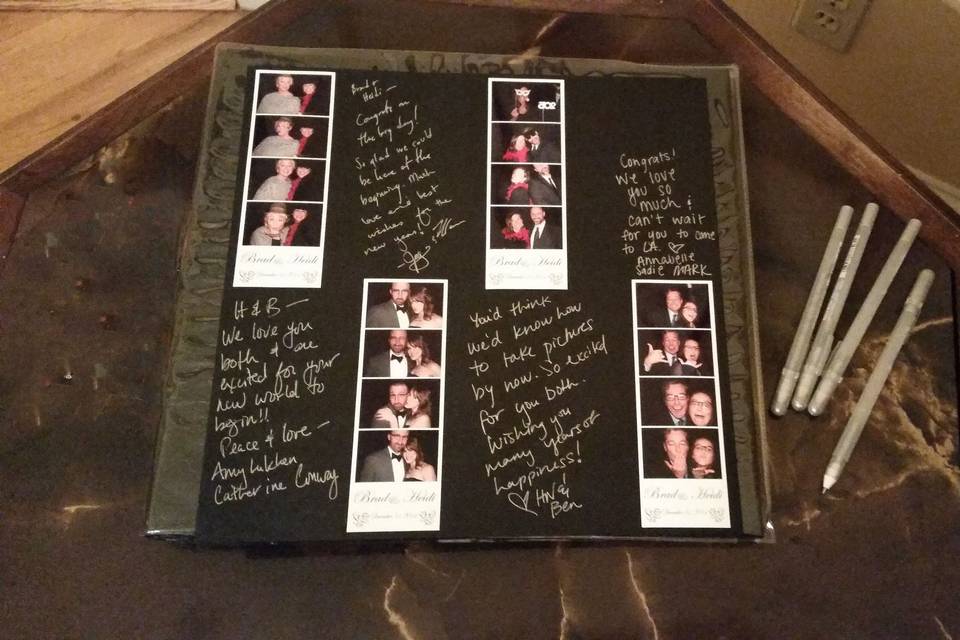 Brad +
Heidi —
Congrats on
the big day!
So glad we could
be here at the
beginning. Much
love and best
wishes for the
new years!
Brad & Heidi
H & B —
We love you
both & are
excited for your
new world to
begin!!
Peace & love —
Amy
Catherine Conway
Brad & Heidi
You'd think
we'd know how
to take pictures
by now. So excited
for you both.
Wishing you
many years of
happiness!
Ben
Congrats!
We love
you so
much &
can't wait
for you to come
to LA. ♡
Annabelle
Sadie MARK
Brad & Heidi
Brad & Heidi